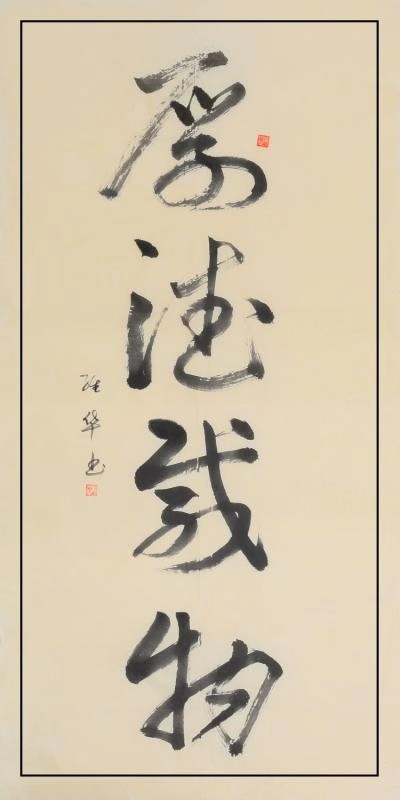 厚德载物
张华书